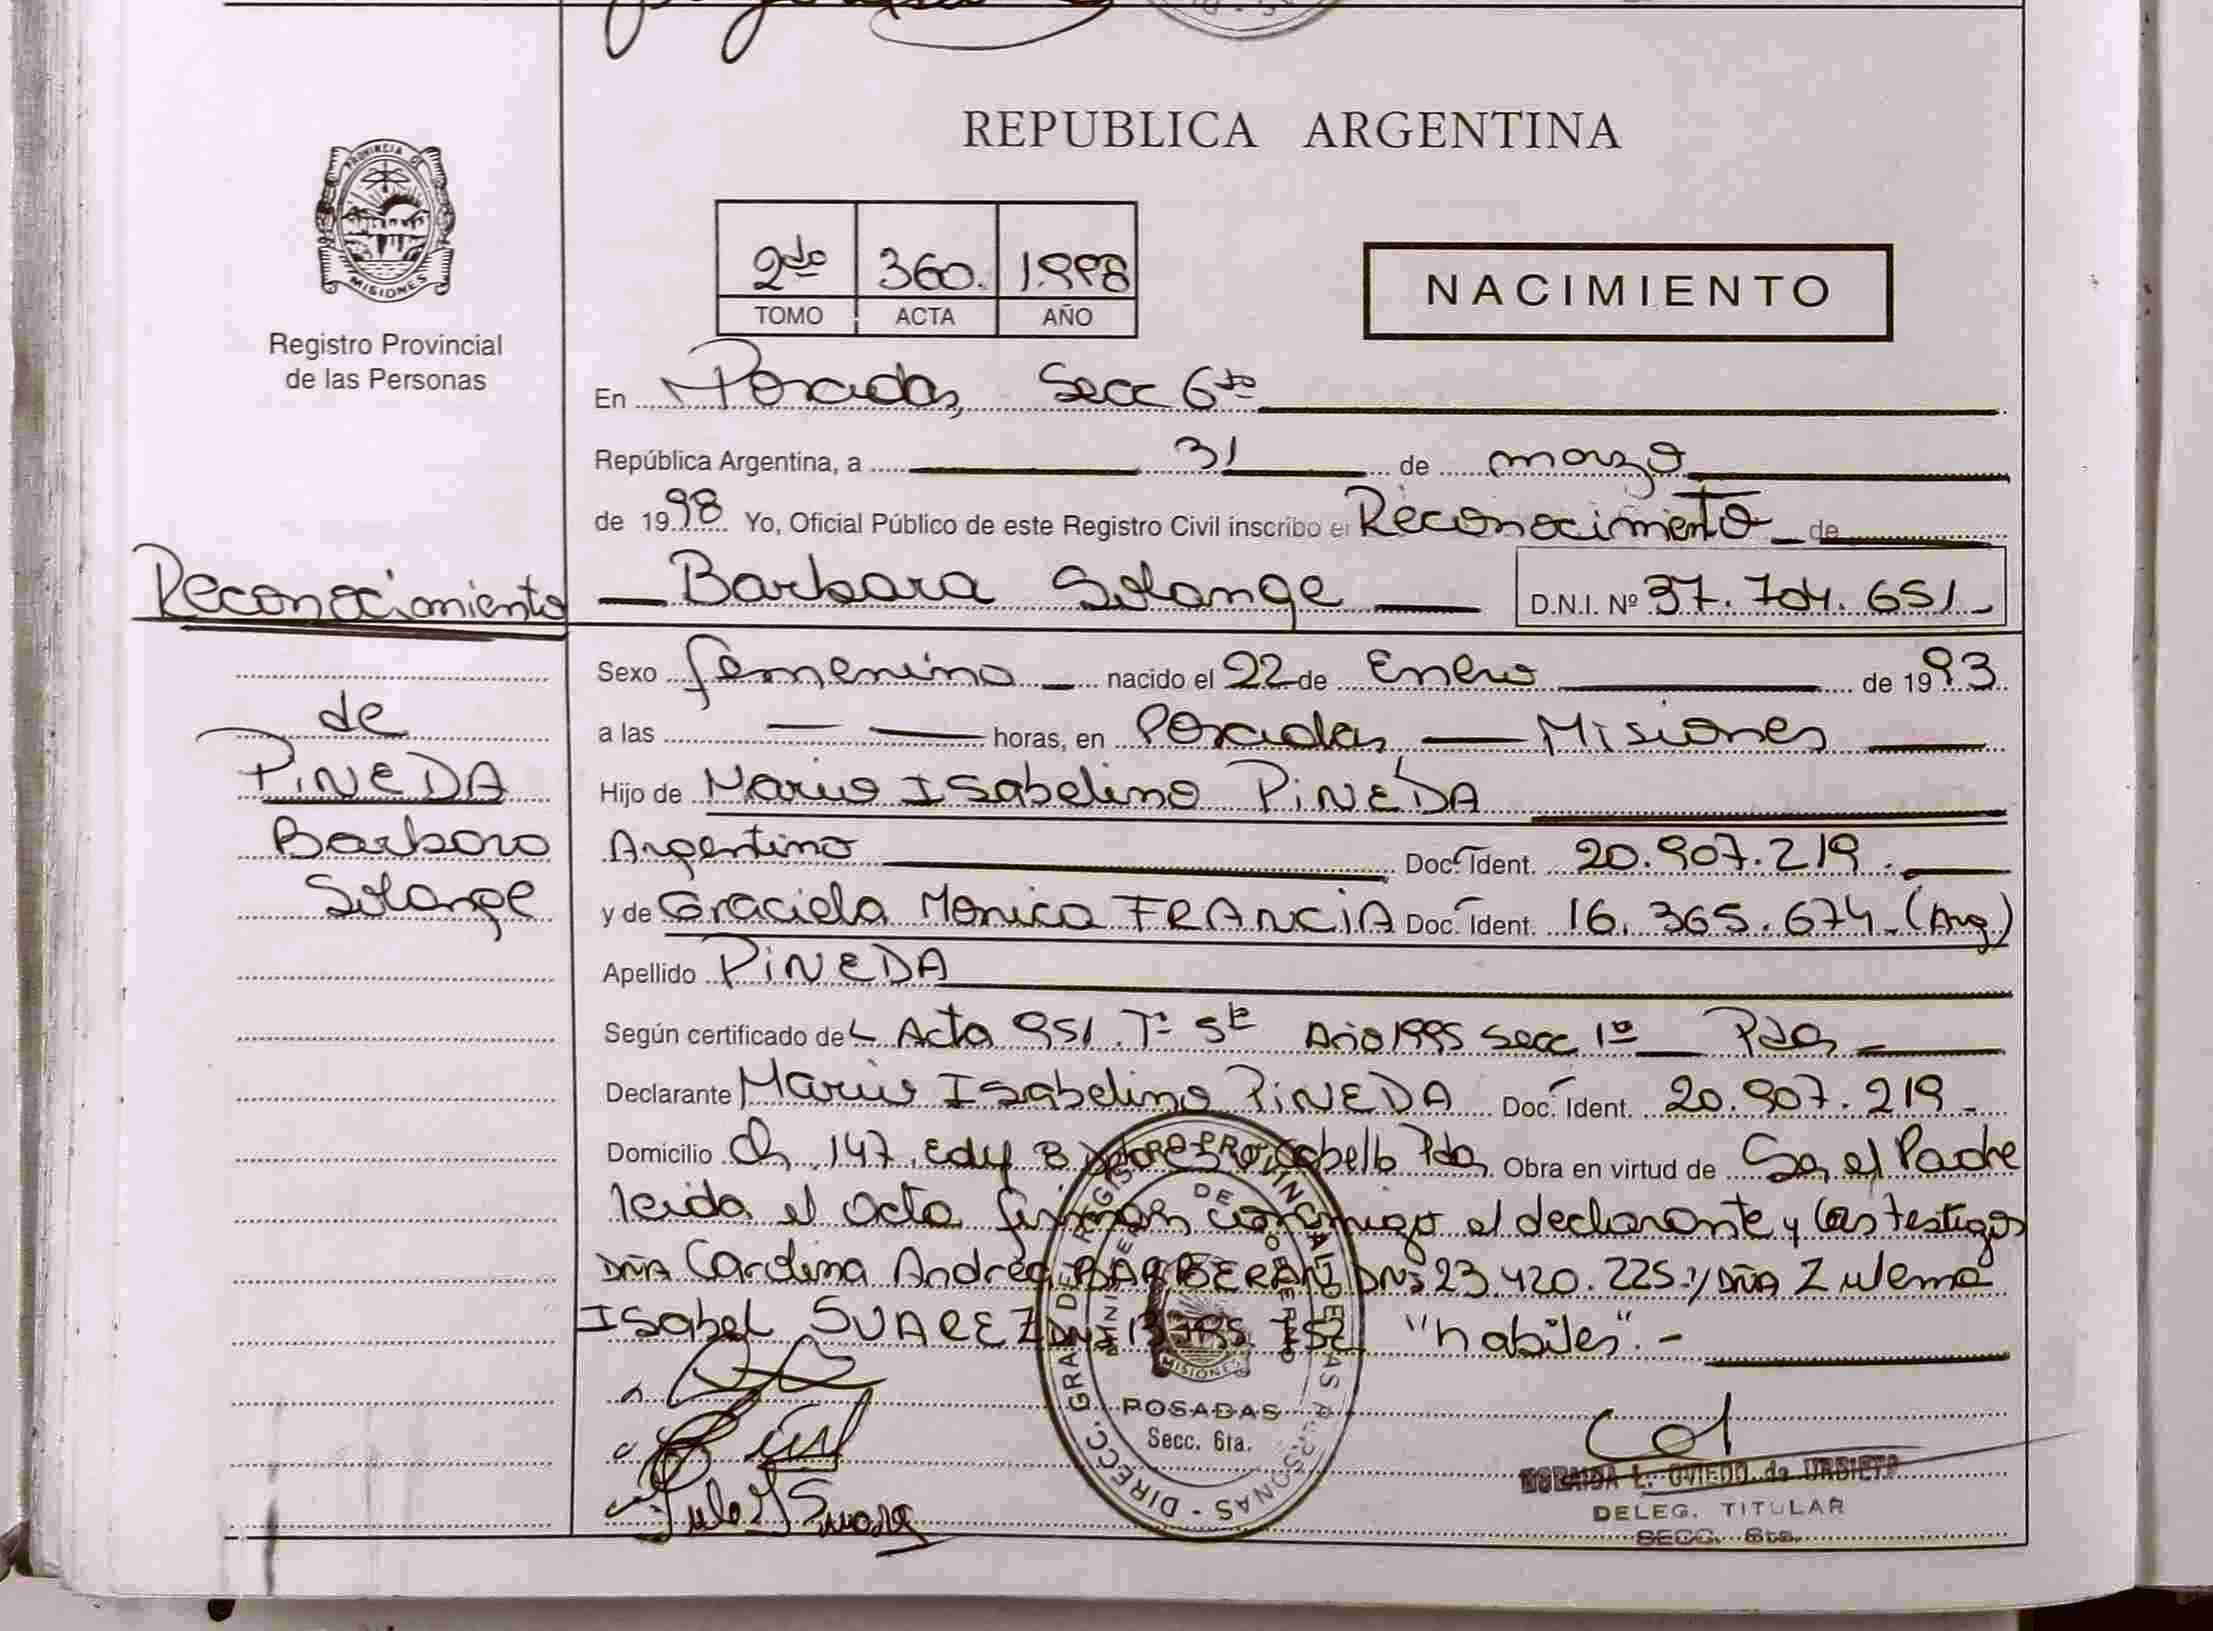 REPUBLICA ARGENTINA
PROVINCIA DE
MISIONES
Registro Provincial
de las Personas
2do 360. 1.998
TOMO ACTA AÑO
NACIMIENTO
En Posadas, Secc 6ta
República Argentina, a 31 de marzo
de 1998 Yo, Oficial Público de este Registro Civil inscribo el Reconocimiento de
Barbara Solange D.N.I. Nº 37.704.651.
Reconocimiento
de
PINEDA
Barbara
Solange
Sexo femenino nacido el 22 de Enero de 1993
a las horas, en Posadas Misiones
Hijo de Mario Isabelino PINEDA
Argentino Doc. Ident. 20.907.219.
y de Graciela Monica FRANCIA Doc. Ident. 16.365.674. (Arg)
Apellido PINEDA
Según certificado de Acta 951. Tº 5to Año 1995 Secc 1º Pdas
Declarante Mario Isabelino PINEDA Doc. Ident. 20.907.219.
Domicilio Ch. 147. Edif 3 Pdas Obra en virtud de Ser el Padre
leida el acta firman conmigo el declarante y las testigos
Dña Carolina Andrea BARBERAN DNI 23.420.225. y Dña Zulema
Isabel SUAREZ DNI "habiles".-
DIRECC. GRAL. DEL REGISTRO PROVINCIAL DE LAS PERSONAS
MINISTERIO DE GOBIERNO
MISIONES
POSADAS
Secc. 6ta.
L. OVIEDO de URBIETA
DELEG. TITULAR
SECC. 6ta.